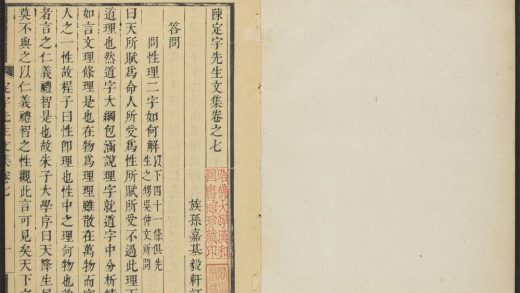 陳定宇先生文集卷之七
族孫嘉基毅軒訂
答問
問性理二字如何解以下四十一條俱先
生之甥吳仲文所問
曰天所賦爲命人所受爲性所賦所受不過此理
道理也然道字大綱包涵說理字就道字中分析
如言文理條理是也在物爲理理雖散在萬物而
人之一性故程子曰性卽理也性中之理何物也
者言之仁義禮智是也故朱子大學序曰天降生
莫不與之以仁義禮智之性觀此言可見矣天下
定宇先生文集 卷七 一
哈佛大學漢和
圖書館珍藏印